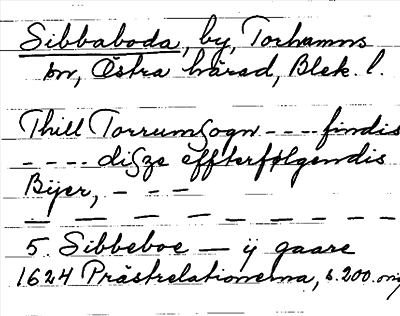 Sibbaboda, by, Torhamns
sn, Östra härad, Blek. l.
Thill Torrumsogn - - - - findis
- - - - disze effterfølgendis
Bijer, - - -
- - - - - - - - - -
5. Sibbeboe - ij gaare
1624 Prästrelationerna, s. 200. orig